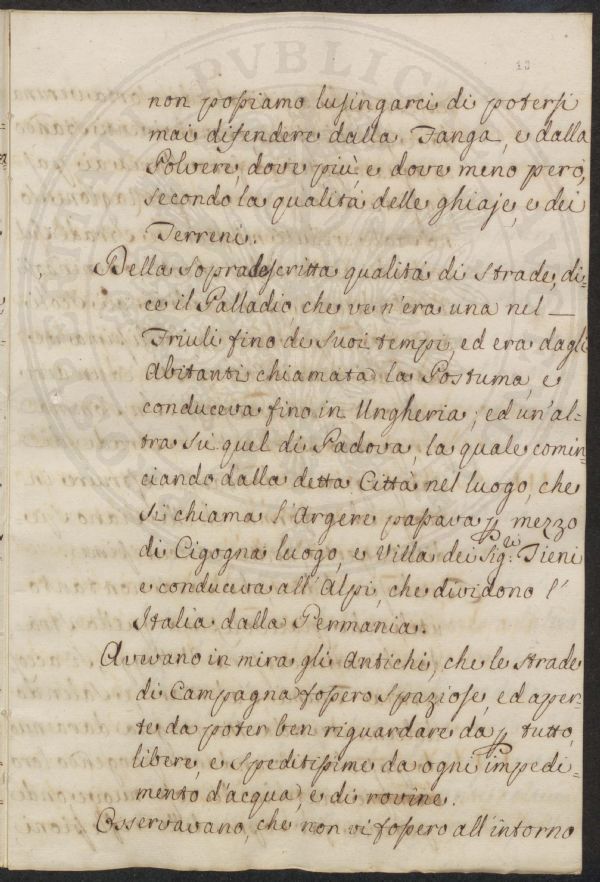 13
non possiamo lusingarci di potersi
mai difendere dalla Fanga, e dalla
Polvere, dove più, e dove meno però,
secondo la qualità delle ghiaje, e dei
Terreni.
Della sopradescritta qualità di strade, di=
ce il Palladio, che ve n'era una nel
Friuli fino de suoi tempi, ed era dagli
Abitanti chiamata la Postuma, e
conduceva fino in Ungheria; ed un'al=
tra sù quel di Padova, la quale comin=
ciando dalla detta Città nel luogo, che
si chiama l'Argere passava p mezzo
di Cigogna luogo, e Villa dei Sig.ri Tieni
e conduceva all'Alpi, che dividono l'
Italia dalla Germania.
Avevano in mira gli Antichi, che le strade
di Campagna fossero spaziose, ed aper=
te da poter ben riguardare da p tutto,
libere, e speditissime da ogni impedi=
mento d'acqua, e di rovine.
Osservavano, che non vi fossero all'intorno